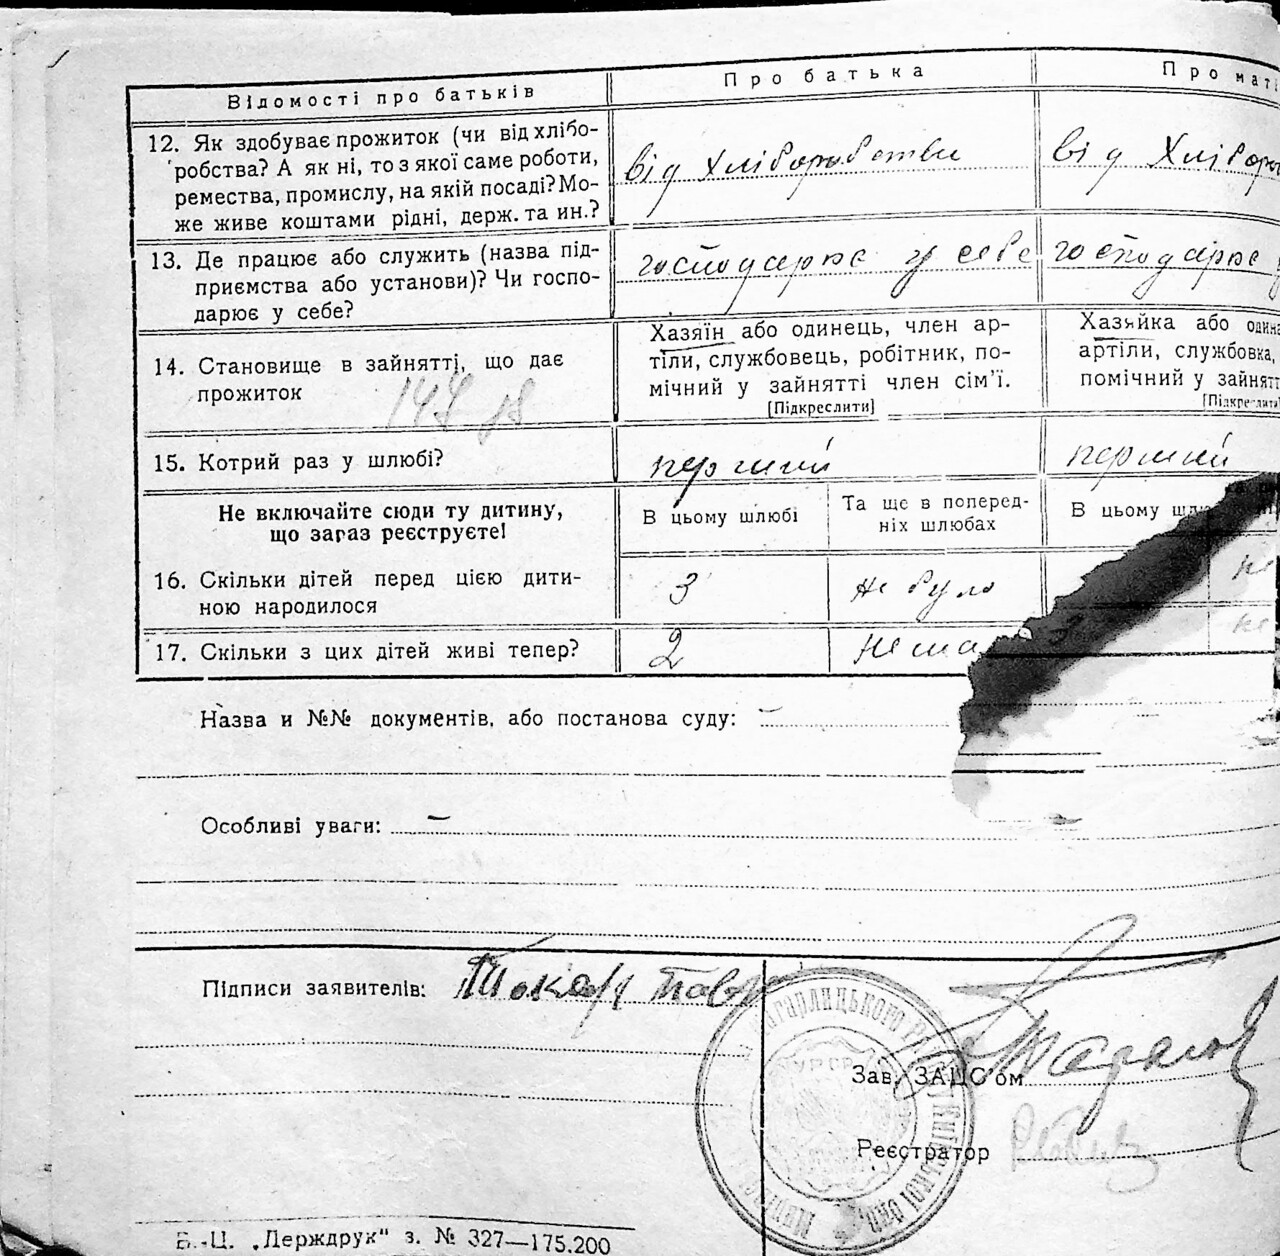 Відомості про батьків
Про батька
Про маті
12. Як здобуває прожиток (чи від хлібо-
робства? А як ні, то з якої саме роботи,
ремества, промислу, на якій посаді? Мо-
же живе коштами рідні, держ. та ин.?
від Хліборобства
від Хлібороб
13. Де працює або служить (назва під-
приємства або установи)? Чи госпо-
дарює у себе?
господарює у себе
господарює у
14. Становище в зайнятті, що дає
прожиток
Хазяїн або одинець, член ар-
тіли, службовець, робітник, по-
мічний у зайнятті член сім'ї.
[Підкреслити]
Хазяйка або один
артіли, службовка,
помічний у зайнятт
[Підкреслити
15. Котрий раз у шлюбі?
перший
перший
Не включайте сюди ту дитину,
що зараз реєструєте!
В цьому шлюбі
Та ще в поперед-
ніх шлюбах
В цьому шл
16. Скільки дітей перед цією дити-
ною народилося
3
не було
не
17. Скільки з цих дітей живі тепер?
2
Нема
3
не
Назва и №№ документів, або постанова суду: —
Особливі уваги: —
Підписи заявителів: Токар
Кагарлицького
Київської окр
УСРР
Зав. ЗАГС'ом
Реєстратор
Б.-Ц. „Держдрук" з. № 327—175.200